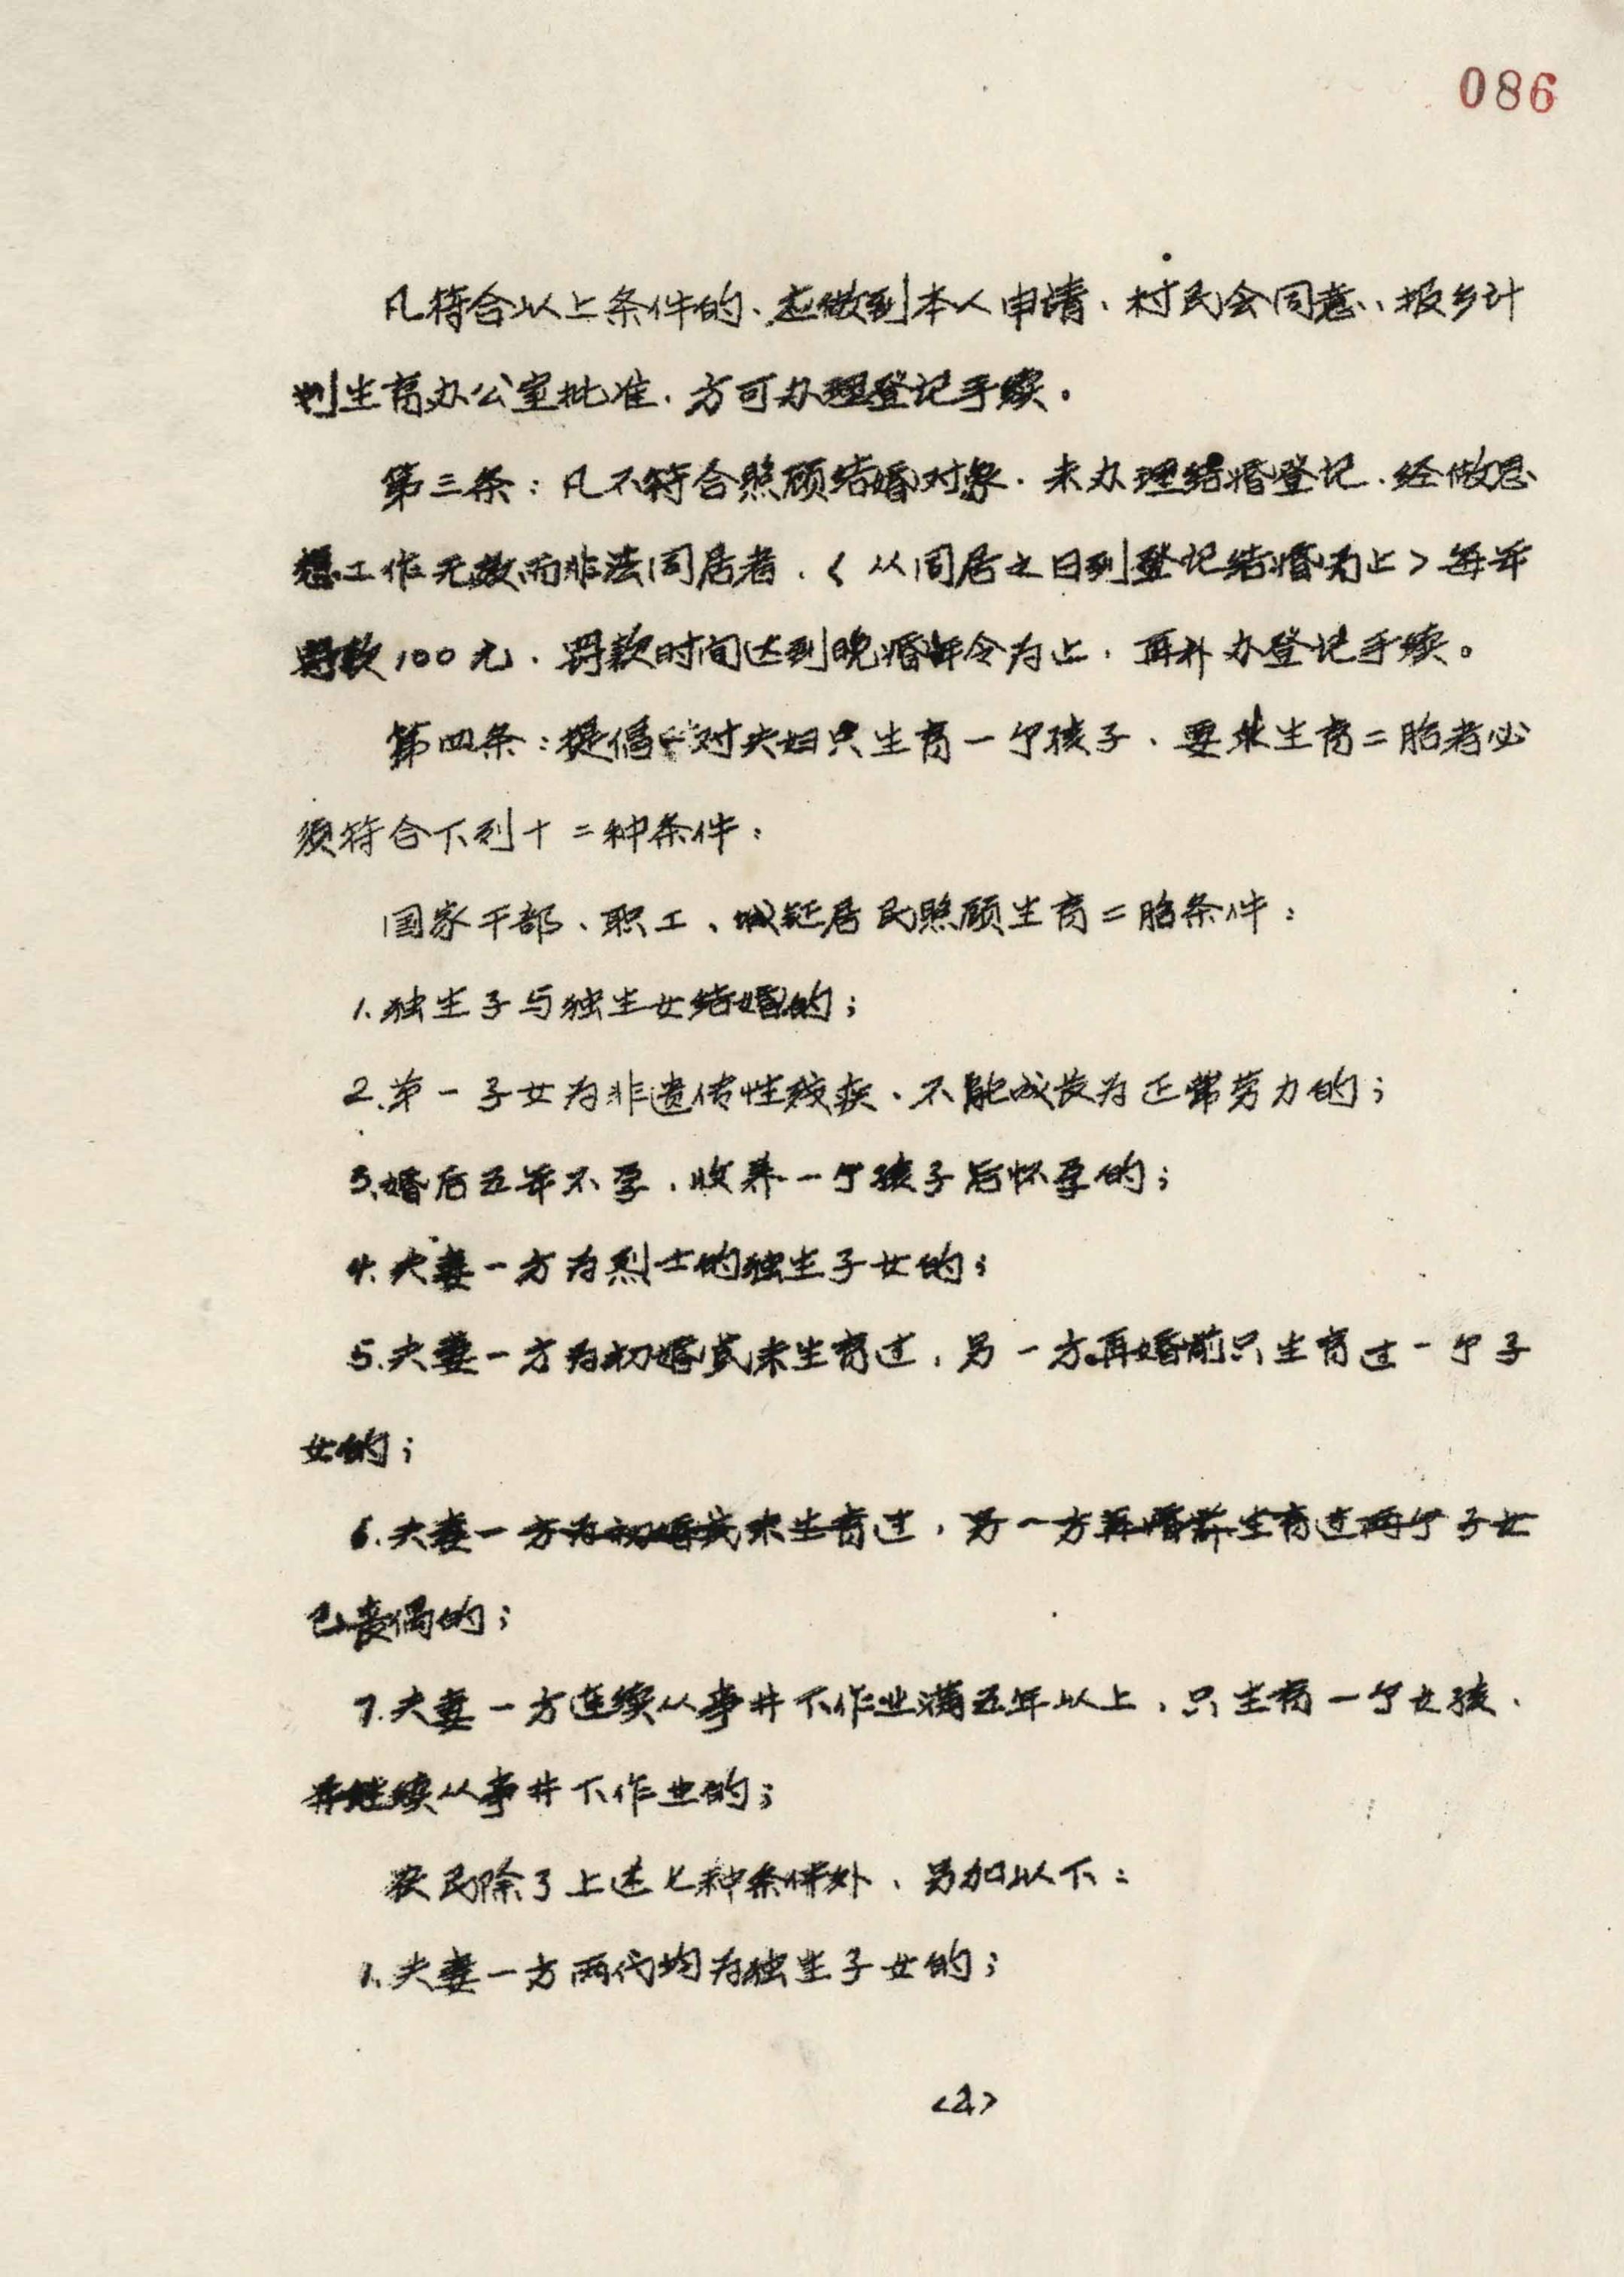 086
凡符合以上条件的、应做到本人申请、村民会同意、报乡计
划生育办公室批准、方可办理登记手续。
第三条：凡不符合照顾结婚对象．未办理结婚登记、经做思
想工作无效而非法同居者、〈从同居之日到登记结婚为止〉每年
罚款100元．罚款时间达到晚婚年令为止．再补办登记手续。
第四条：提倡一对夫妇只生育一个孩子、要求生育二胎者必
须符合下列十二种条件：
国家干部、职工、城镇居民照顾生育二胎条件：
1.独生子与独生女结婚的；
2.第一子女为非遗传性残疾、不能成长为正常劳力的；
3.婚后五年不孕、收养一个孩子后怀孕的；
4.夫妻一方为烈士的独生子女的；
5.夫妻一方为初婚或未生育过，另一方再婚前只生育过一个子
女的；
6.夫妻一方为初婚或未生育过，另一方再婚前生育过两个子女
已丧偶的；
7.夫妻一方连续从事井下作业满五年以上，只生育一个女孩、
并继续从事井下作业的；
农民除了上述七种条件外、另加以下：
1.夫妻一方两代均为独生子女的；
〈2〉